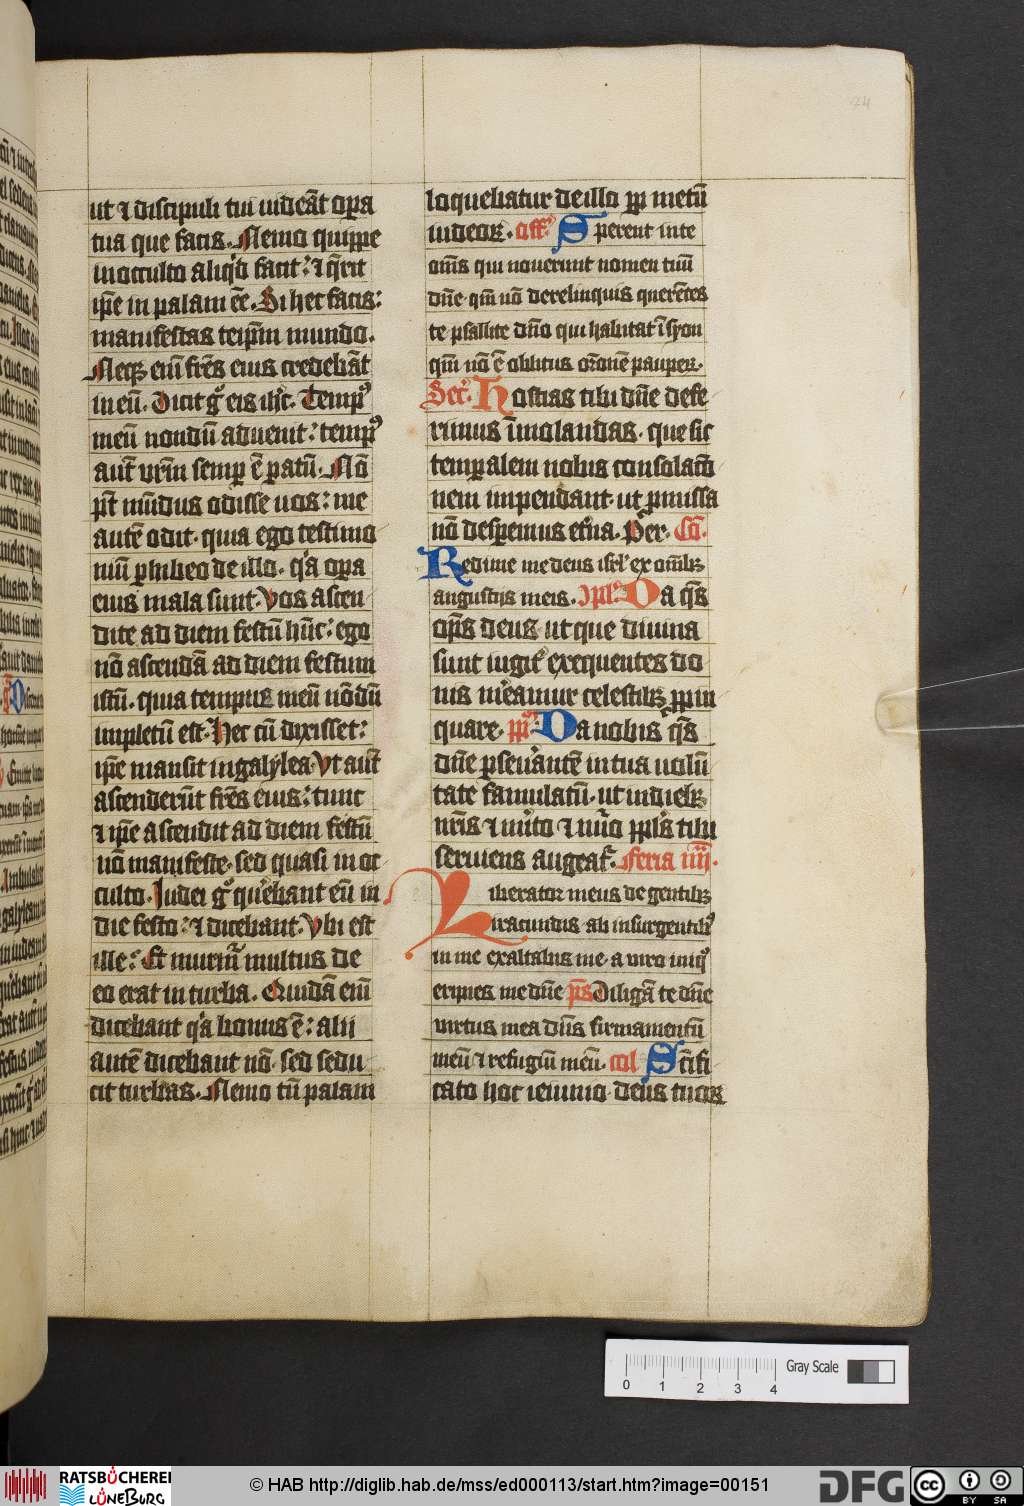 74
ut ⁊ discipuli tui uideāt oꝑa
tua que facis. Nemo quippe
in occulto aliqͥd facit: ⁊ q̄rit
ip̄e in palam eē. Si hec facis:
manifestas teip̄m mundo.
Necꝫ eni͞ fr̄es eius credebāt
in eū. Dicit gͦ eis ih̄c. Tempꝰ
meū nondū aduenit: tempꝰ
aut̄ vr̄m semꝑ ē paratū. Nō
pt̄ mūdus odisse uos: me
autē odit. quia ego testimo
niū ꝑhibeo de illo. qͥa oꝑa
eius mala sunt. Vos ascen
dite ad diem festū hūc: ego
nō ascendā ad diem festum
istū. quia tempus meū nōdū
impletū est. Hec cū dixisset:
ip̄e mansit in galylea. Vt aut̄
ascenderūt fr̄es eius: tunc
⁊ ip̄e ascendit ad diem festū
nō manifeste. sed quasi in oc
culto. Judei gͦ querebant eū in
die festo: ⁊ dicebant. Vbi est
ille: Et murmͬ multus de
eo erat in turba. Quidā eni͞
dicebant qͥa bonus ē: alii
autē dicebant nō. sed sedu
cit turbas. Nemo tn̄ palam
loquebatur de illo ꝓpͭ metū
iudeoꝝ. off̄. Sperent in te
om̄s qui nouerunt nomen tuū
dn̄e. qm̄ nō derelinquis querētes
te psallite dn̄o qui habitat ī syon
qm̄ nō ē oblitus orōnem pauperꝝ.
Secͬ. Hostias tibi dn̄e defe
rimus īmolandas. que sic
temꝑalem nobis consolacō
nem impendant. ut ꝓmissa
nō desꝑemus et̄na. Per. Cō.
Redime me deus isrl̄ ex om̄ibꝫ
angustijs meis. Da qͣs
op̄s deus. ut que diuina
sunt iugit̄ exequentes do
nis mereamur celestibꝫ ꝓpin
quare. Da nobis qͣs
dn̄e ꝑseuerantē in tua uolū
tate famulatū. ut in diebꝫ
nr̄is ⁊ mͥto ⁊ nūo ppl̄s tibi
seruiens augeatͬ. Feria iiij.
Liberator meus de gentibꝫ
iracundis. ab insurgentibꝰ
in me exaltabis me. a uiro iniqͦ
eripies me dn̄e ps̄ Diligā te dn̄e
uirtus mea dn̄s firmamentū
meū ⁊ refugiū meū. col Sc̄tifi
cato hoc ieiunio deus tuoꝝ
0 1 2 3 4
Gray Scale
RATSBÜCHEREI LÜNEBURG
© HAB http://diglib.hab.de/mss/ed000113/start.htm?image=00151
DFG
cc BY SA